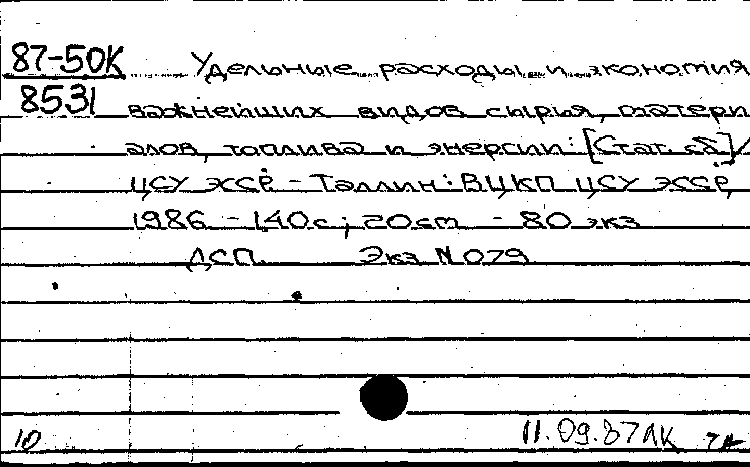 87-50К Удельные расходы и экономия
8531 важнейших видов сырья, матери
алов, топлива и энергии: [Стат. сб]/
ЦСУ ЭССР - Таллин: ВЦКП ЦСУ ЭССР,
1986 - 140с; 20cm - 80 экз
ДСП Экз N 079
10 11.09.87